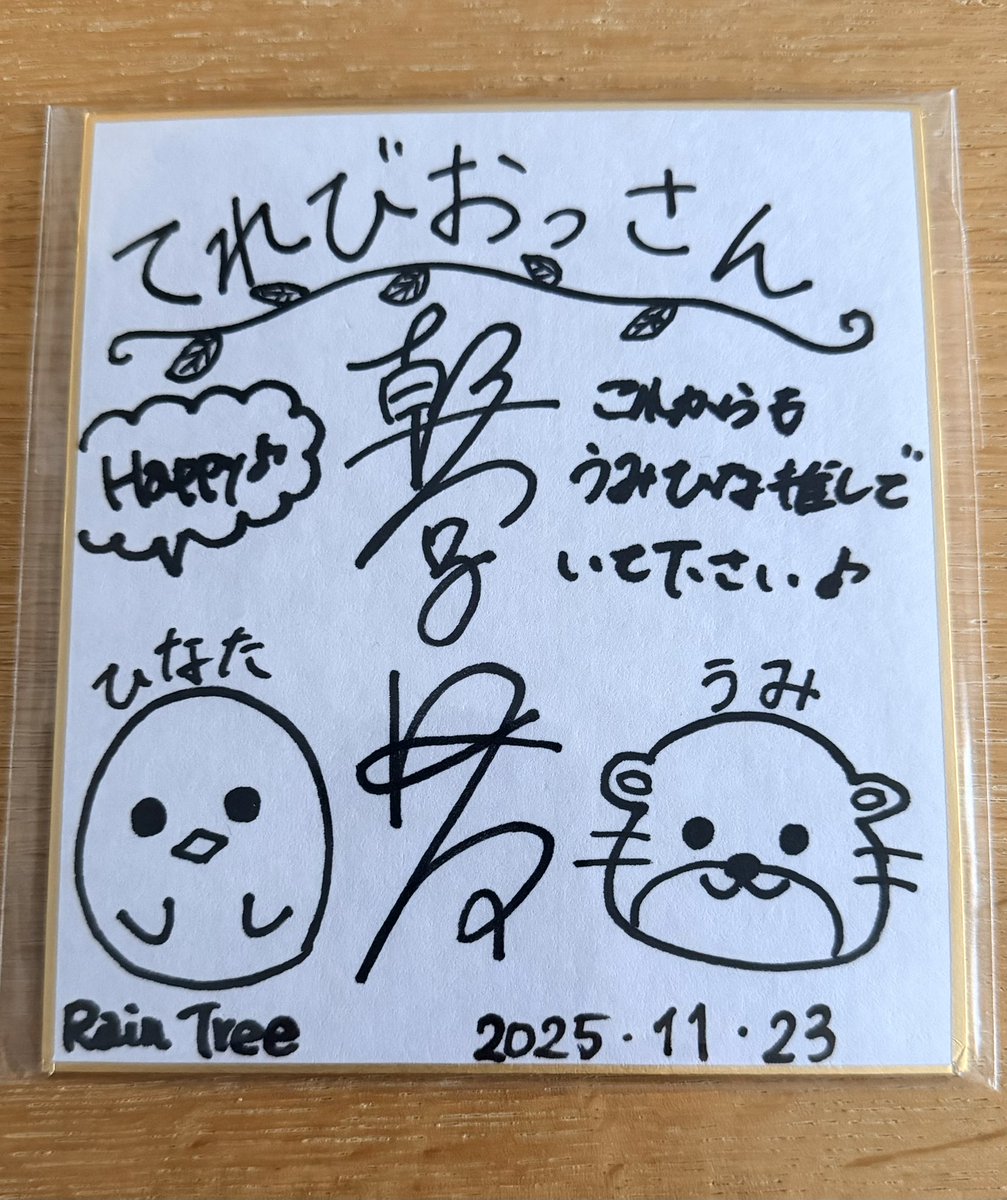 てれびおっさん
Happy♪
これからも
うみひな推しで
いて下さい♪
ひなた
うみ
Rain Tree
2025.11.23